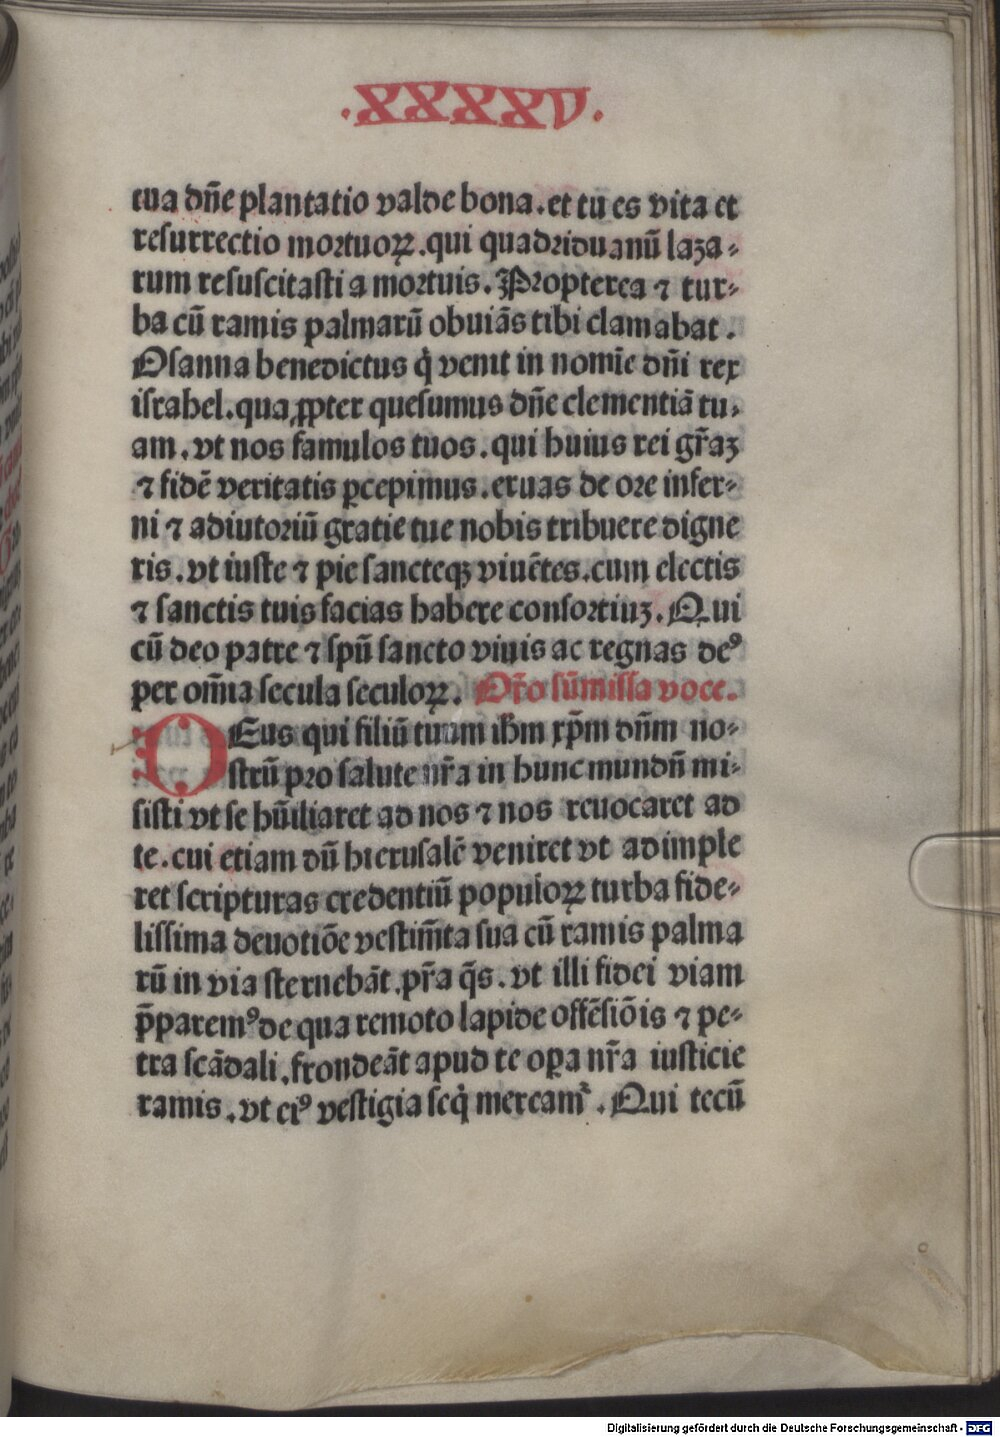 .XXXXV.
tua dñe plantatio valde bona. et tu es vita et
resurrectio mortuoꝝ. qui quadriduanũ laza⸗
rum resuscitasti a mortuis. Propterea ⁊ tur⸗
ba cũ ramis palmarũ obuiãs tibi clamabat.
Osanna benedictus q̇ venit in nomĩe dñi rex
israhel. qua ꝓpter quesumus dñe clementiã tu⸗
am. vt nos famulos tuos. qui huius rei gr̃aꝫ
⁊ fidẽ veritatis ꝑcepimus. eruas de ore infer⸗
ni ⁊ adiutoriũ gratie tue nobis tribuere digne
ris. vt iuste ⁊ pie sancteqꝫ viuẽtes. cum electis
⁊ sanctis tuis facias habere consortiuꝫ. Qui
cũ deo patre ⁊ spũ sancto viuis ac regnas deꝰ
per om̃ia secula seculoꝝ. Or̃o sũmissa voce.
DEus qui filiũ tuum ihm xp̃m dñm no⸗
strũ pro salute nr̃a in hunc mundũ mi⸗
sisti vt se hũiliaret ad nos ⁊ nos reuocaret ad
te. cui etiam dũ hierusalẽ veniret vt adimple
ret scripturas credentiũ populoꝝ turba fide⸗
lissima deuotiõe vestim̃ta sua cũ ramis palma
rũ in via sternebãt. pr̃a q̃s. vt illi fidei viam
p̃paremꝰ de qua remoto lapide offẽsiõis ⁊ pe⸗
tra scãdali. frondeãt apud te oꝑa nr̃a iusticie
ramis. vt eiꝰ vestigia seq̇ mereamʳ. Qui tecũ
Digitalisierung gefördert durch die Deutsche Forschungsgemeinschaft - DFG